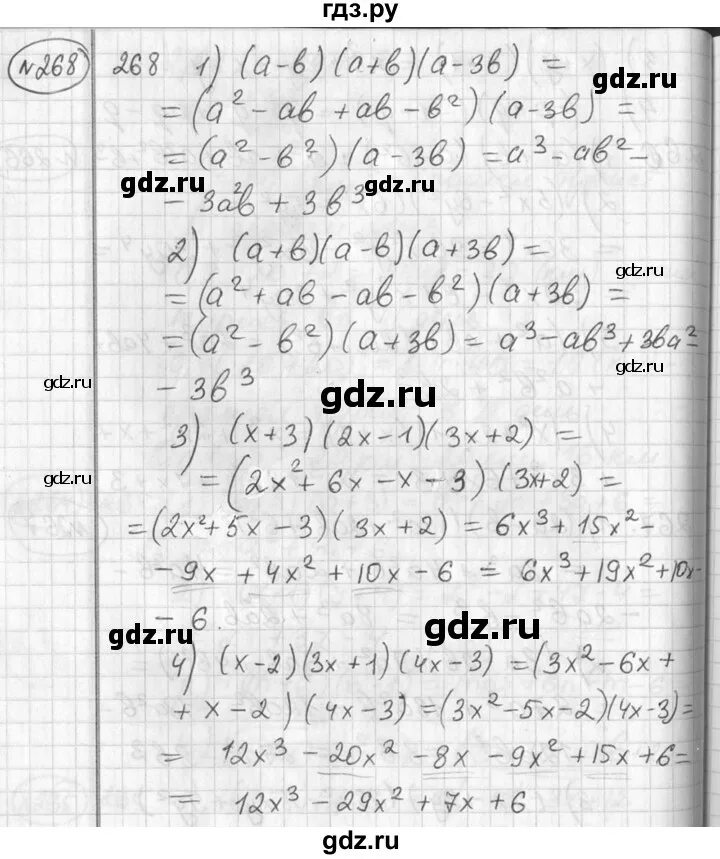 гдз.ру
№268 268 1) (a-b)(a+b)(a-3b) =
= (a² - ab + ab - b²)(a-3b) =
= (a² - b²)(a - 3b) = a³ - ab² -
gdz.ru gdz.ru
- 3a²b + 3b³
2) (a+b)(a-b)(a+3b) =
gdz.ru
= (a² + ab - ab - b²)(a+3b) =
= (a² - b²)(a+3b) = a³ - ab³ + 3ba² -
gdz.ru gdz.ru
- 3b³ gdz.ru
3) (x+3)(2x-1)(3x+2) =
gdz.ru gdz.ru
= (2x² + 6x - x - 3)(3x+2) =
= (2x² + 5x - 3)(3x+2) = 6x³ + 15x² -
- 9x + 4x² + 10x - 6 = 6x³ + 19x² + 10x -
- 6
gdz.ru gdz.ru
4) (x-2)(3x+1)(4x-3) = (3x² - 6x +
+ x - 2)(4x-3) = (3x² - 5x - 2)(4x-3) =
= 12x³ - 20x² - 8x - 9x² + 15x + 6 =
= 12x³ - 29x² + 7x + 6
gdz.ru